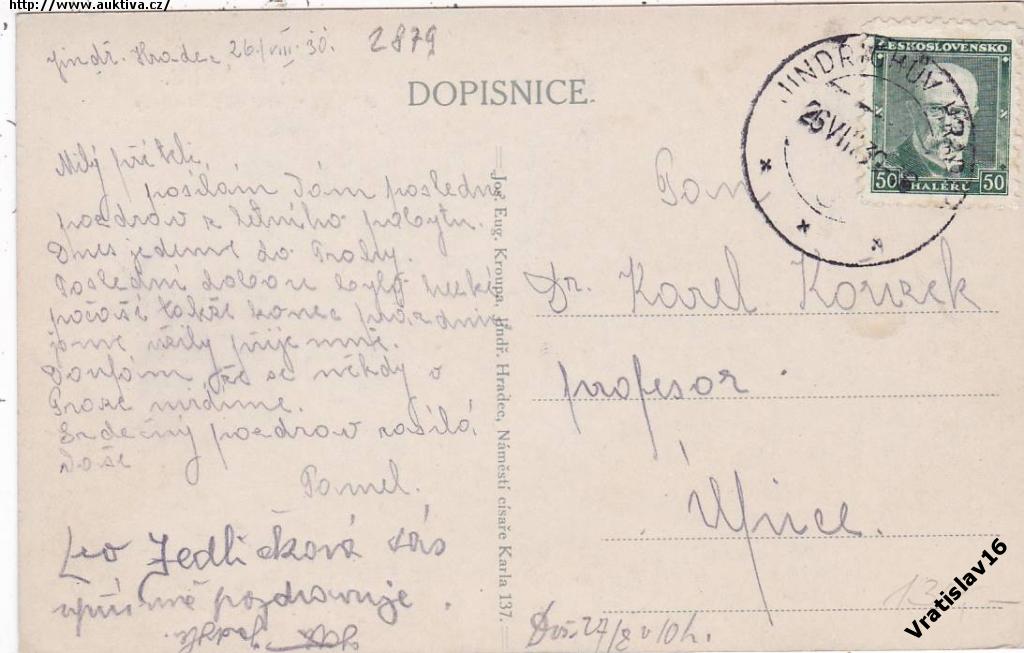 http://www.auktiva.cz/
Jindř. Hradec, 26./VIII. 30.
2879
DOPISNICE.
ČESKOSLOVENSKO
50 HALÉŘŮ 50
JINDŘICHŮV HRADEC
26 VIII 30
Milý příteli,
posílám Vám poslední
pozdrav z letního pobytu.
Dnes jedeme do Prahy.
Poslední dobou bylo hezké
počasí takže konec prázdnin
jsme užily příjemně.
Doufám že se někdy v
Praze uvidíme.
Srdečný pozdrav zasílá
Vaše
Pamel.
Jedličková Vás
upřímně pozdravuje.
Jos. Eug. Kroupa, Jindř. Hradec, Náměstí císaře Karla 137.
Pan
Dr. Karel
profesor
Doš. 27/8 v 10 h.
Vratislav16